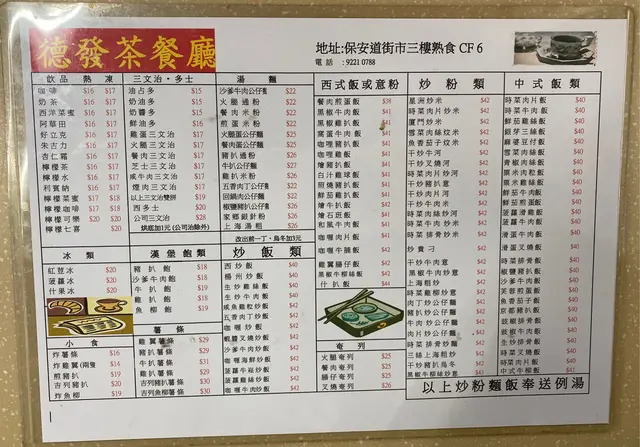 德發茶餐廳
地址:保安道街市三樓熟食 CF 6
電話 : 9221 0788
飲品 熱 凍
咖啡 $16 $17
奶茶 $16 $17
西洋菜蜜 $16 $17
阿華田 $16 $17
好立克 $16 $17
朱古力 $16 $17
杏仁霜 $16 $17
檸檬茶 $16 $17
檸檬水 $16 $17
利賓納 $16 $17
檸檬菜蜜 $17 $18
檸檬咖啡 $17 $18
檸檬可樂 $20 $20
檸檬七喜 $20
冰類
紅荳冰 $20
菠蘿冰 $20
什果冰 $20
小食
炸薯條 $16
炸雞翼(兩隻 $14
煎豬扒 $19
吉列豬扒 $20
炸魚柳 $19
三文治・多士
油占多 $15
奶油多 $15
奶醬多 $15
鮮油多 $16
雞蛋三文治 $17
火腿三文治 $17
餐肉三文治 $17
芝士三文治 $17
咸牛肉三文治 $17
煙肉三文治 $17
以上三文治雙拼 $19
西多士 $20
公司三文治 $28
烘底加1元 (公司治除外)
漢堡飽類
豬扒飽 $18
沙爹牛肉飽 $19
牛扒飽 $19
雞扒飽 $18
魚柳飽 $19
薯條
雞翼薯條 $29
豬扒薯條 $29
牛扒薯條 $31
雞扒薯條 $29
吉列豬扒薯條 $30
吉列魚柳薯條 $30
湯麵
沙爹牛肉公仔麵 $22
火腿通粉 $22
餐肉米粉 $22
煎蛋米粉 $22
火腿蛋公仔麵 $25
餐肉蛋公仔麵 $25
豬扒通粉 $26
牛扒公仔麵 $26
雞扒米粉 $26
五香肉丁公仔麵 $26
回鍋肉公仔麵 $26
椒鹽豬扒公仔麵 $26
家鄉銀針粉 $26
上海湯粗 $26
改出前一丁・烏冬加3元
炒飯類
西炒飯 $40
楊州炒飯 $40
生炒雞絲飯 $40
生炒牛肉飯 $40
咸魚雞粒炒飯 $42
五香肉丁炒飯 $42
咖喱炒飯 $42
蝦膠叉燒炒飯 $42
沙爹牛肉炒飯 $42
咖喱海鮮炒飯 $42
菠蘿牛崧炒飯 $42
菠蘿雞絲炒飯 $42
生炒排骨炒飯 $42
西式飯或意粉
餐肉煎蛋飯 $38
黑椒牛扒飯 $41
黑椒雞扒飯 $41
窩蛋牛肉飯 $41
咖喱豬扒飯 $41
咖喱雞飯 $41
燴豬扒飯 $41
白汁雞球飯 $41
照燒豬扒飯 $41
鮮茄雞扒飯 $41
燴牛扒飯 $41
燴石豆飯 $41
和風牛肉飯 $41
咖喱肉片飯 $41
雞翼腸仔飯 $41
黑椒牛柳絲飯 $41
什扒飯 $41
奄列
火腿奄列 $25
餐肉奄列 $25
腸仔奄列 $25
叉燒奄列 $26
炒粉類
星洲炒米 $42
時菜肉片炒米 $42
廈門炒米 $42
雪菜肉絲炆米 $42
魚香茄子炆米 $42
干炒牛河 $42
干炒叉燒河 $42
時菜肉片炒河 $42
干炒豬扒意 $42
干炒雞扒意 $42
干炒肉絲意 $42
時菜肉絲炒河 $42
時菜牛肉炒河 $42
時菜排骨炒米 $42
炒貴刁 $42
干炒牛肉意 $42
黑椒牛肉炒意 $42
上海粗炒 $42
時菜雞柳炒意 $42
肉絲炒公仔麵 $42
豬扒炒公仔麵 $42
牛肉炒公仔麵 $42
肉片炒公仔麵 $42
時菜排骨炒麵 $42
三絲上海粗炒 $42
干炒豬扒烏冬 $42
黑椒牛柳絲炒意 $42
中式飯類
時菜肉片飯 $40
時菜牛肉飯 $40
鮮茄雞絲飯 $40
銀芽三絲飯 $40
麻婆豆付飯 $40
雪菜肉絲飯 $40
鮮茄牛肉飯 $40
粟米肉粒飯 $40
粟米雞絲飯 $40
鮮茄肉片飯 $40
菠蘿雞滑飯 $40
滑蛋牛肉飯 $40
滑蛋叉燒飯 $40
時菜排骨飯 $40
椒鹽豬扒飯 $40
沙爹牛肉飯 $40
芙蓉煎蛋飯 $40
魚香茄子飯 $40
京都豬扒飯 $40
豉椒排骨飯 $40
豉椒牛肉飯 $40
生炒排骨飯 $40
時菜叉燒飯 $40
時菜肉片飯 $40
中式牛柳飯 $41
以上炒粉麵飯奉送例湯